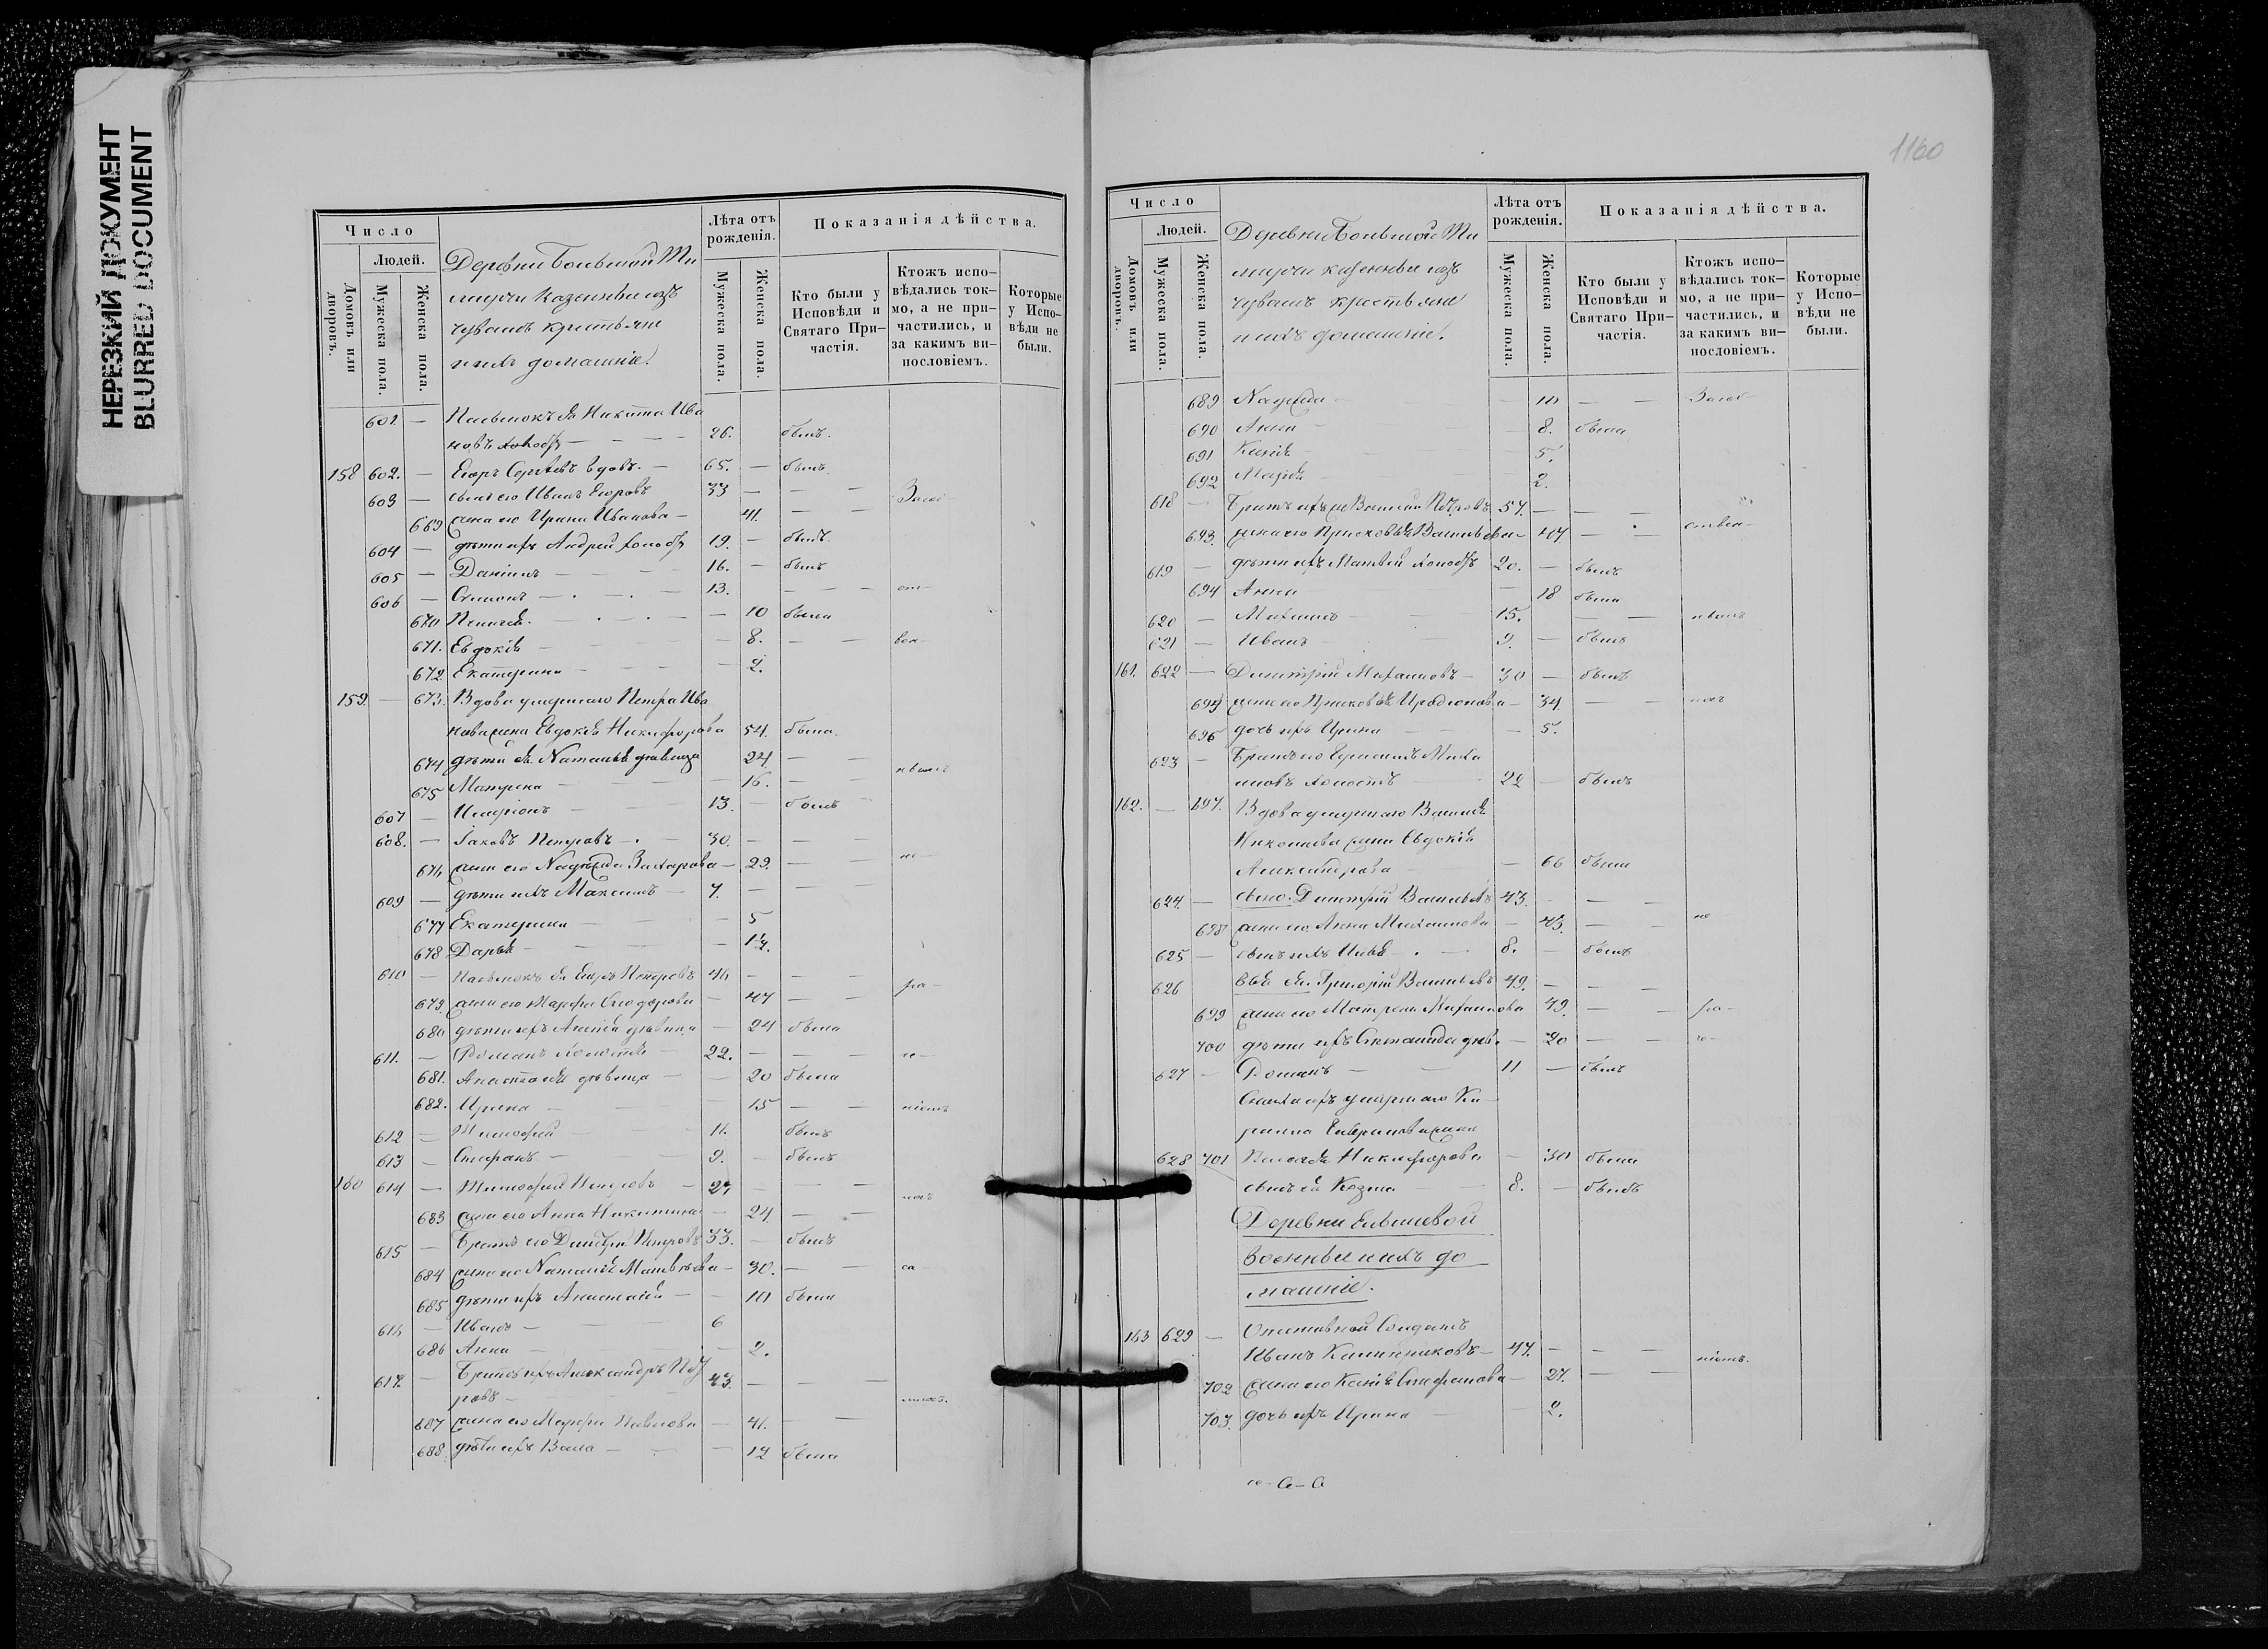 НЕРЕЗКИЙ ДОКУМЕНТ
BLURRED DOCUMENT
Число
Людей.
Домовъ или дворовъ.
Мужеска пола.
Женска пола.
Деревни Большой
казенные изъ
чувашъ крестьяне
и ихъ домашніе.
Лѣта отъ рожденія.
Мужеска пола.
Женска пола.
Показанія дѣйства.
Кто были у Исповѣди и Святаго Причастія.
Ктожъ исповѣдались токмо, а не причастились, и за какимъ винословіемъ.
Которые у Исповѣди не были.
601 — Пасынокъ ея Никита Ива
новъ — 26. былъ.
158 602. — Егоръ Сергѣевъ вдовъ. — 65. — былъ.
603 — сынъ его Иванъ Егоровъ 33 — —
669 жена его Ирина Иванова — 41. — —
604 — дѣти ихъ Андрей холостъ 19. — былъ.
605 — Даніилъ — 16. — былъ
606 — Симонъ — 13. — — от-
670 Пелагея. — 10 была
671. Евдокія — 8. — — вса-
672. Екатерина — 2.
159. — 673. Вдова умершаго Петра Ива
нова жена Евдокія Никифорова 54. была.
674 дѣти ея Наталья дѣвица 24 — —
675 Матрена — 16. —
607 — Иларіонъ — 13. — былъ
608. — Іаковъ Петровъ — 30. — —
676 жена его Надежда Захарова — 29. — — не-
609 — дѣти ихъ Максимъ — 7. — —
677 Екатерина — 5
678 Дарья —
610 — Пасынокъ ея Егоръ Петровъ 46 — — ра-
679. жена его Марфа Сидорова — 47 — —
680 дѣти ихъ Агапія дѣвица — 24 была
611. — Романъ холостъ — 22. — —
681. Анастасія дѣвица — 20 была
682. Ирина — 15 — — ніемъ
612 — Тимофей — 11. былъ
613 — Стефанъ — 9. — былъ
160 614 — Тимофей Петровъ — 27 — —
683 жена его Анна Никитина — 24. — —
615 — Братъ его Димитрій Петровъ 33. — былъ
684 жена его Наталія Матвѣева — 30. — — са-
685 дѣти ихъ Анастасія — 10 была
616 — Иванъ — 6
686 Анна — 2.
617. — Братъ ихъ Александръ Пет
ровъ — 43. — —
687 жена его Марфа Павлова — 41. — —
688. дѣти ихъ Васса — 12 была
1160
Число
Людей.
Домовъ или дворовъ.
Мужеска пола.
Женска пола.
Деревни Большой
казенные изъ
чувашъ крестьяне
и ихъ домашніе.
Лѣта отъ рожденія.
Мужеска пола.
Женска пола.
Показанія дѣйства.
Кто были у Исповѣди и Святаго Причастія.
Ктожъ исповѣдались токмо, а не причастились, и за какимъ винословіемъ.
Которые у Исповѣди не были.
689 Надежда — 10 — —
690 Анна — 8. была
691 Ксенія — 5.
692 Марія — 2.
618 — Братъ ихъ Василій Петровъ 57. — —
693. жена его Прасковья Васильева — 47. — —
619 — дѣти ихъ Матвѣй холостъ 20. — былъ
694 Анна — 18 была
620 — Михаилъ — 15. — —
621 — Иванъ — 9. — былъ
161. 622 — Димитрій Михаиловъ — 30 — былъ
695 жена его Прасковья Иродіонова — 34. — —
696 дочь ихъ Ирина — 5.
623 — Братъ его Герасимъ Миха
иловъ холостъ — 22 — былъ
162. — 697. Вдова умершаго Василія
Николаева жена Евдокія
Александрова — 66 была
624. — Димитрій Васильевъ 43. — —
698 жена его Анна Михаилова — 43. — — не
625 — сынъ ихъ Илья — 8. — былъ
626 Григорій Васильевъ 49. — —
699 жена его Матрена Михаилова 49. — — ра-
700 дѣти ихъ дѣв. — 20 — —
627 — Романъ — 11 — былъ
Сноха ихъ умершаго Ки
рилла жена
628 701 Пелагея Никифорова — 30 была
сынъ ея Козма — 8. — былъ
Деревни
Военные и ихъ до
машніе.
163 629 — Отставной Солдатъ
Иванъ Калинниковъ — 47. — — ніемъ.
702 жена его Ксенія Стефанова — 27. — —
703. дочь ихъ Ирина — 2.